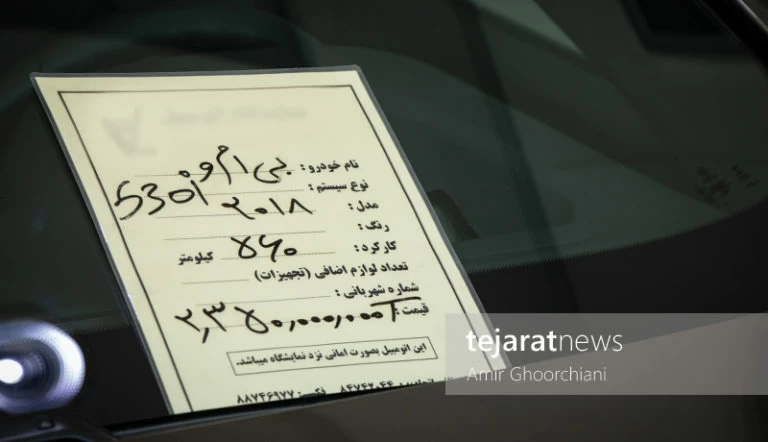 نام خودرو : بی ام و
نوع سیستم : 530i
مدل : ۲۰۱۸
رنگ :
کارکرد : ۷۶۰ کیلومتر
تعداد لوازم اضافی (تجهیزات)
شماره شهربانی :
قیمت : ۲,۳۷۰,۰۰۰,۰۰۰T
این اتومبیل بصورت امانی نزد نمایشگاه میباشد.
۸۸۷۴۶۹۷۷ فکس:
tejaratnews
Amir Ghoorchiani